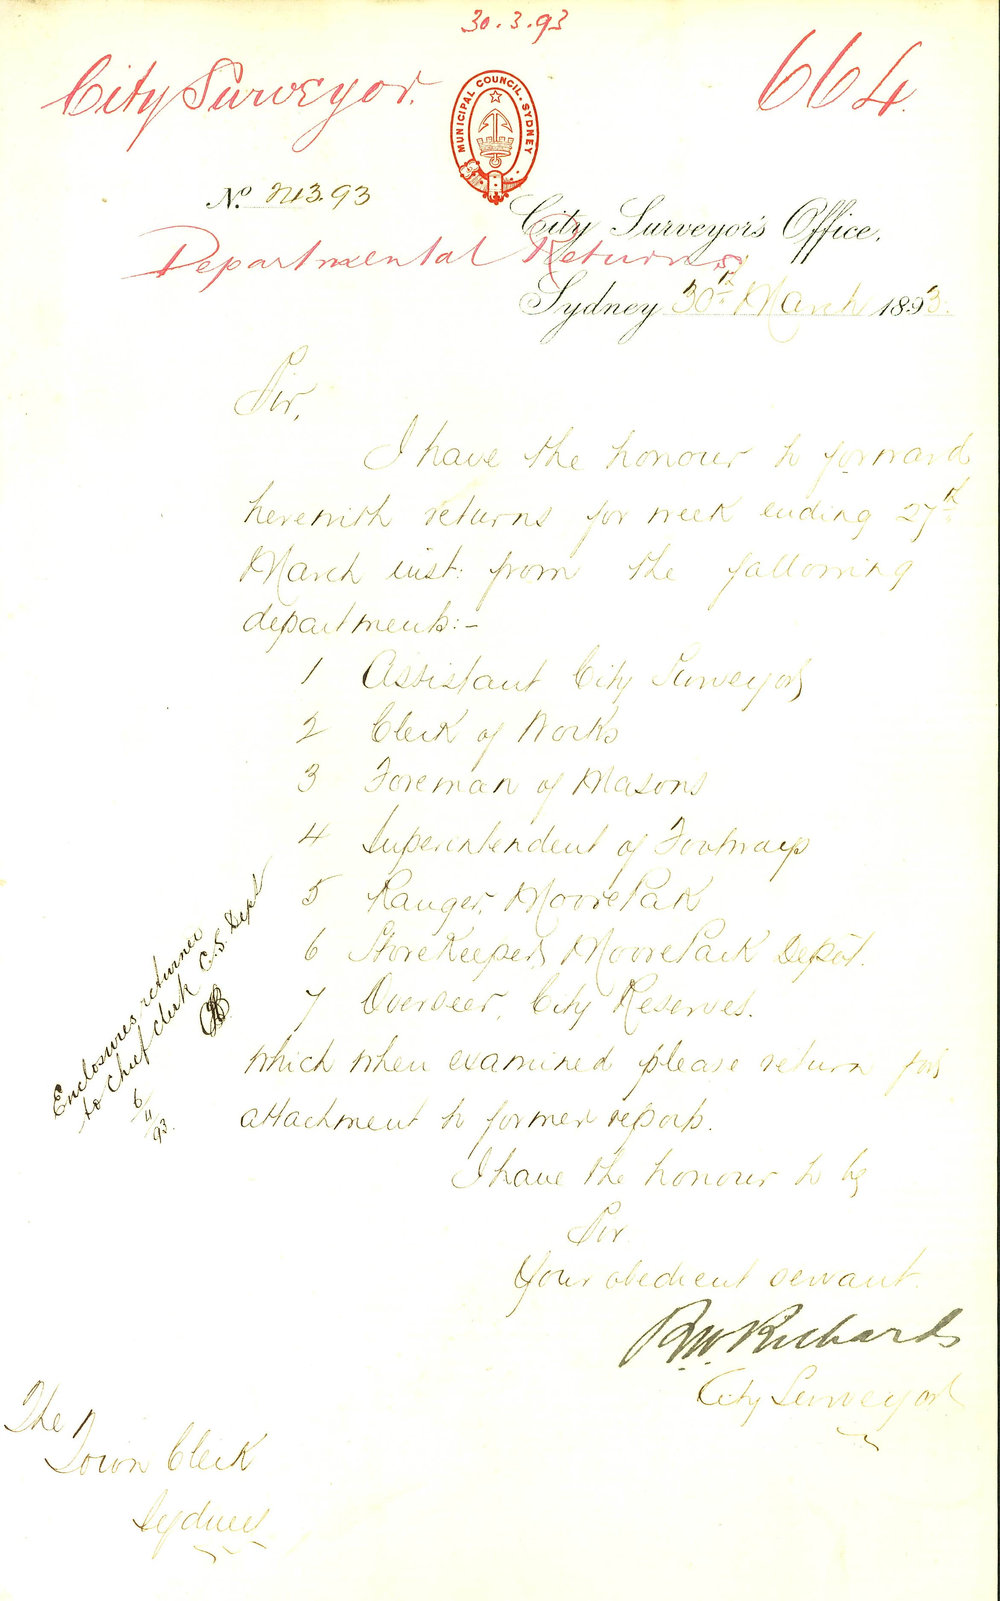 30.3.93
City Surveyor.
664.
MUNICIPAL COUNCIL. SYDNEY
No. 213.93
City Surveyor's Office,
Departmental Returns
Sydney 30th March 1893.
Sir,
I have the honour to forward
herewith returns for week ending 27th
March inst: from the following
departments:-
1 Assistant City Surveyor
2 Clerk of Works
3 Foreman of Masons
4 Superintendent of Footways
5 Ranger, Moore Park
6 Storekeeper, Moore Park Depôt.
7 Overseer, City Reserves.
which when examined please return for
attachment to former reports.
I have the honour to be
Sir
Your obedient servant.
R W Richards
City Surveyor
The
Town Clerk
Sydney
Enclosures returned
to Chief clerk C.S. Dept
6/4/93.